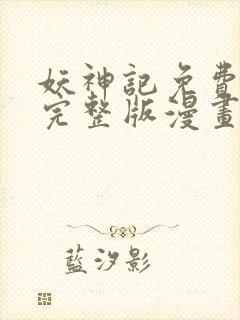 妖神記免費
完整版漫畫
藍汐影